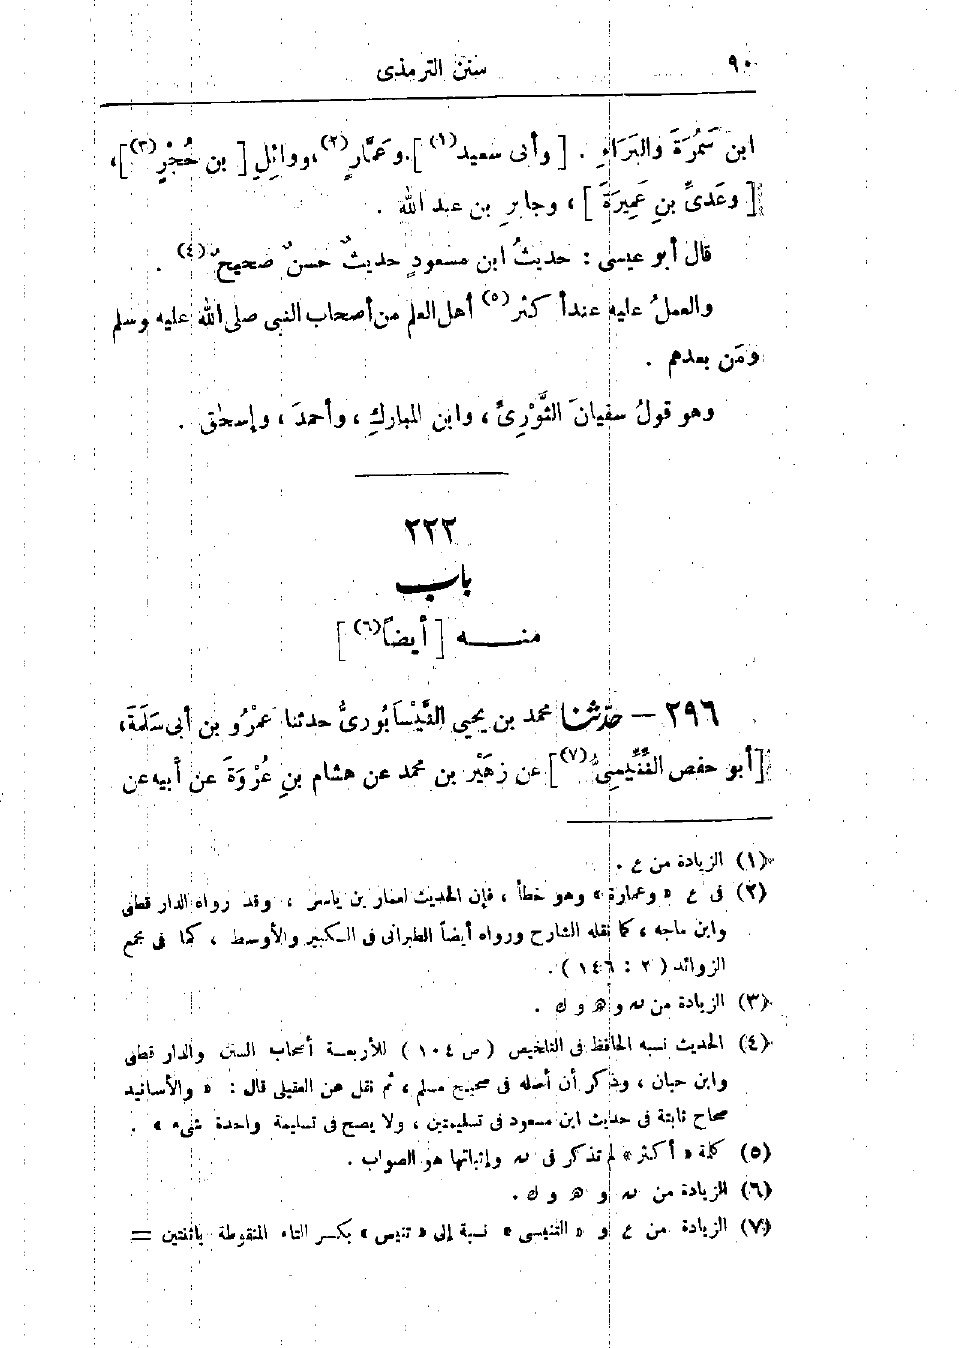 ٩٠
سنن الترمذى
ابن سَمُرَةَ والبَرَاءِ . [ وأبى سعيد(١) ] . وعَمَّارٍ(٢) ، ووائِلِ [ بن حُجْرٍ(٣) ] ،
[ وعَدىِّ بنِ عَمِيرَةَ ] ، وجابرِ بن عبد الله .
قال أبو عيسى : حديثُ ابن مسعودٍ حديثٌ حسنٌ صحيحٌ(٤) .
والعملُ عليه عند أكثر(٥) أهل العلم من أصحاب النبى صلى الله عليه وسلم
ومَن بعدهم .
وهو قولُ سفيانَ الثَّوْرِىِّ ، وابن المباركِ ، وأحمدَ ، وإسحٰق .
٢٢٢
باب
منه [ أيضاً(٦) ]
٢٩٦ – حدّثنا محمد بن يحيى النَّيْسَابُورىُّ حدثنا عمْرُو بن أبى سَلَمَةَ ،
[ أبو حفص التِّنِّيسِىُّ(٧) ] عن زهَيْر بن محمد عن هشام بنِ عُرْوَةَ عن أبيه عن
(١) الزيادة من ع .
(٢) فى ع « وعمارة » وهو خطأ ، فإن الحديث لعمار بن ياسر ، وقد رواه الدار قطنى
وابن ماجه ، كما نقله الشارح ورواه أيضاً الطبرانى فى الكبير والأوسط ، كما فى مجمع
الزوائد ( ٢ : ١٤٦ ) .
(٣) الزيادة من ﻪ و ﻫ و ك .
(٤) الحديث نسبه الحافظ فى التلخيص ( ص ١٠٤ ) للأربعة أصحاب السنن والدار قطنى
وابن حبان ، وذكر أن أصله فى صحيح مسلم ، ثم نقل عن العقيلى قال : « والأسانيد
صحاح ثابتة فى حديث ابن مسعود فى تسليمتين ، ولا يصح فى تسليمة واحدة شىء » .
(٥) كلمة « أكثر » لم تذكر فى ﻪ وإثباتها هو الصواب .
(٦) الزيادة من ﻪ و ﻫ و ك .
(٧) الزيادة من ع و « التنيسى » نسبة إلى « تنيس » بكسر التاء المنقوطة باثنتين =